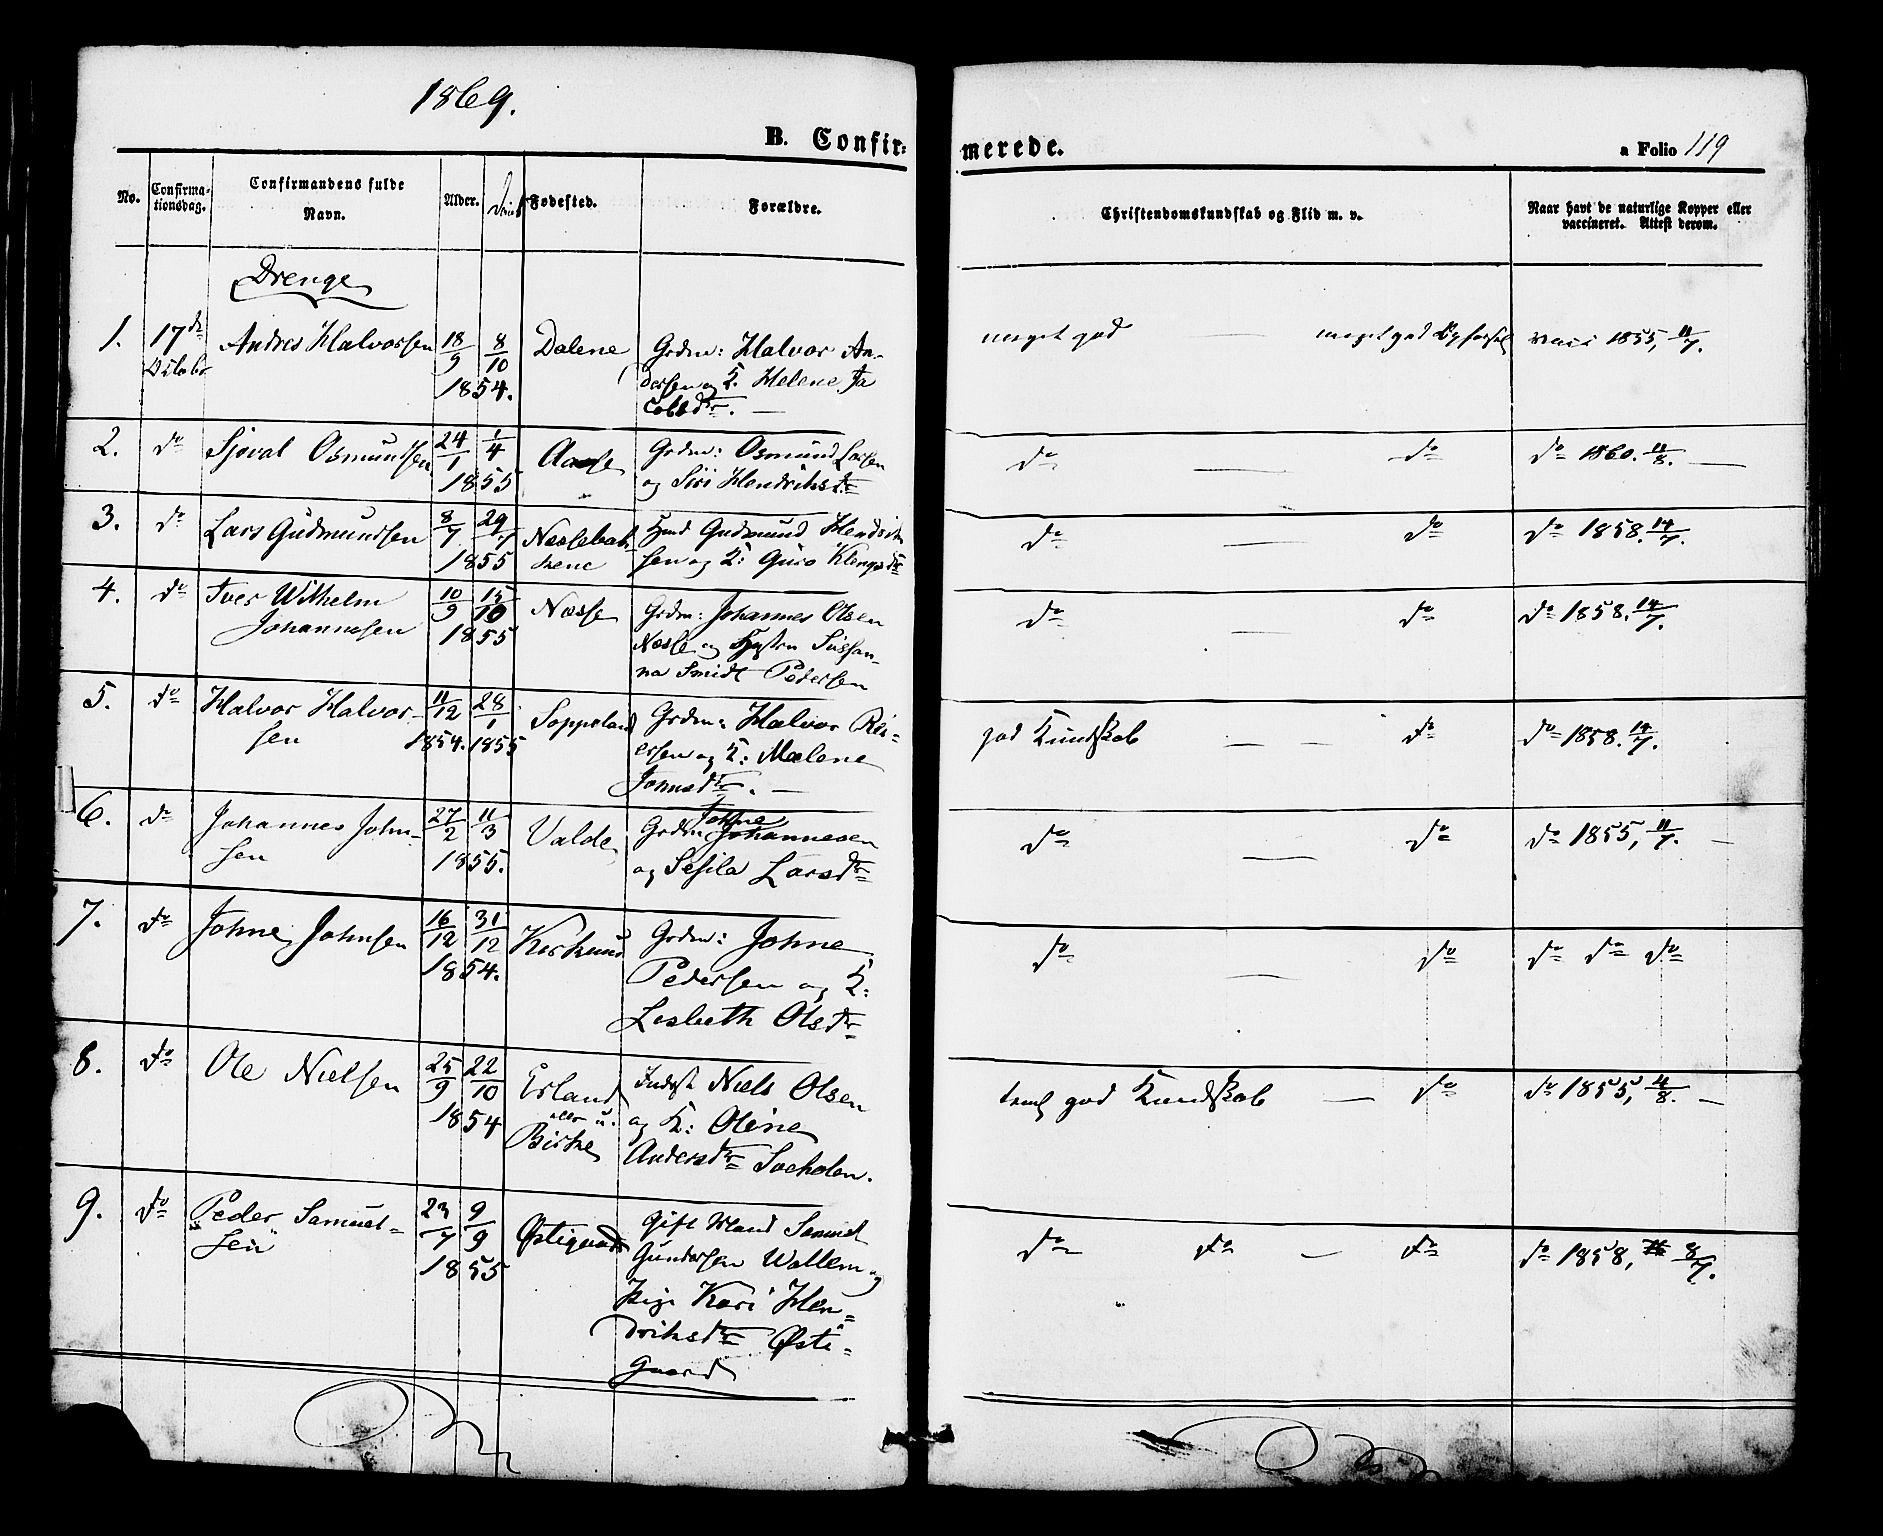 1869.
B. Confir:
merede.
a Folio 119
No.
Confirma-
tionsdag.
Confirmandens fulde
Navn.
Alder.
Fødested.
Forældre.
Christendomskundskab og Flid m. v.
Naar havt de naturlige Kopper eller
vaccineret. Attest derom.
Drenge
1. 17de Andres Halvorsen 18/9 8/10 1854. Dalene Grdm: Halvor An-
dersen og K. Helene Ja
cobsdtr. —
meget god — meget god vacc 1855, 11/7.
2. do Sjoval Osmundsen 24/1 1/4 1855 Aase Grdm: Osmund Larsen
og Siri Hendriksdtr
do — do do 1860. 11/8. —
3. do Lars Gudmundsen 8/7 29/7 1855 Gudmund Hendrik
sen og K: Guro Klengsdtr
do — do do 1858. 14/7.
4. do Tver Wilhelm
Johannesen 10/9 15/10 1855 Næsse Grdm: Johannes Olsen
Næsse og Hustru Sussan-
na Smidt Pedersen
do — do do 1858. 14/7.
5. do Halvor Halvor-
sen 11/12 1854. 28/1 1855 Soppeland Grdm: Halvor Rei-
ersen og K: Malene
Johnsdtr. —
god Kundskab — — do do 1858. 14/7.
6. do Johannes John-
sen 27/2 11/3 1855. Valde Grdm Johne
Johannesen
og Sesila Larsdtr
do — do do 1855, 11/7. —
7. do Johne Johnsen 16/12 31/12 1854. Grdm: Johne
Pedersen og K:
Lisbeth Olsdtr
do — do do do do
8. do Ole Nielsen 25/9 22/10 1854 Erland
eller u.
Birke Inderst Niels Olsen
og K: Oline
Andersdtr
temlig god Kundskab — do do 1855, 4/8. —
9. do Peder Samuel-
sen 23/7 9/9 1855 Østigaard Gift Mand Samuel
Gundersen Wallem og
Pige Kari Hen-
driksdtr Østi-
gaard
do do — do do 1858, 8/7.